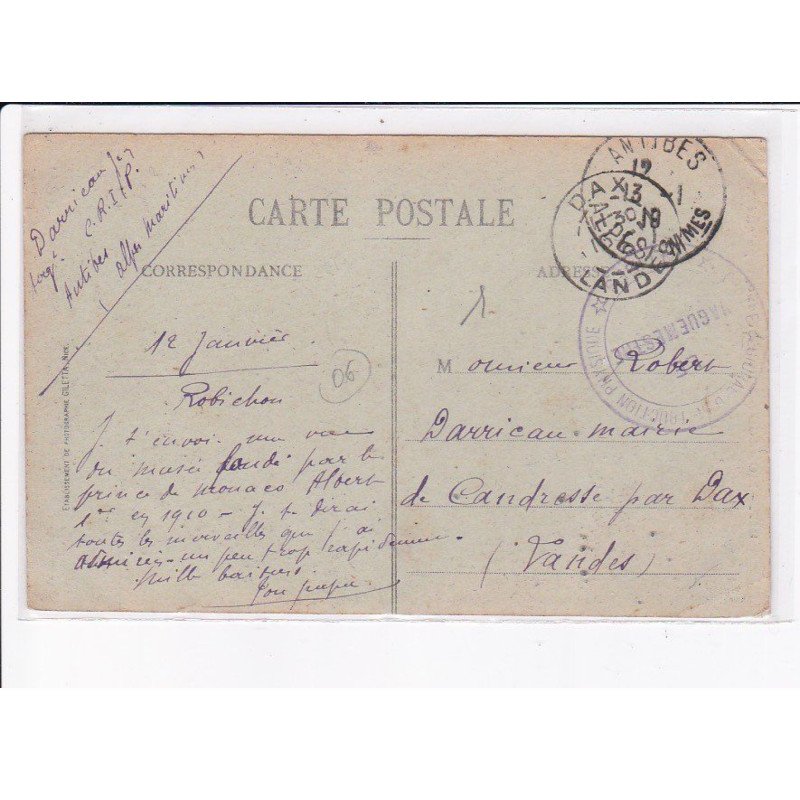 Darrican
C.R.I.P.
Antibes
(Alpes Maritimes)
CARTE POSTALE
CORRESPONDANCE
ADRESSE
ANTIBES
12 -1
19
ALPES MMES
DAX
13
LANDES
VAGUEMESTRE
INSTRUCTION PHYSIQUE
1
06
12 Janvier
Robichon
Je t'envoi une vue
du musée fondé par le
prince de monaco Albert
1er en 1910 - Je te dirai
toutes les merveilles que j'ai
admirées un peu trop rapidement
Mille baisers
Ton papa
Monsieur Robert
Darrican mairie
de Candresse par Dax
(Landes)
ETABLISSEMENT DE PHOTOGRAPHIE GILETTA, NICE